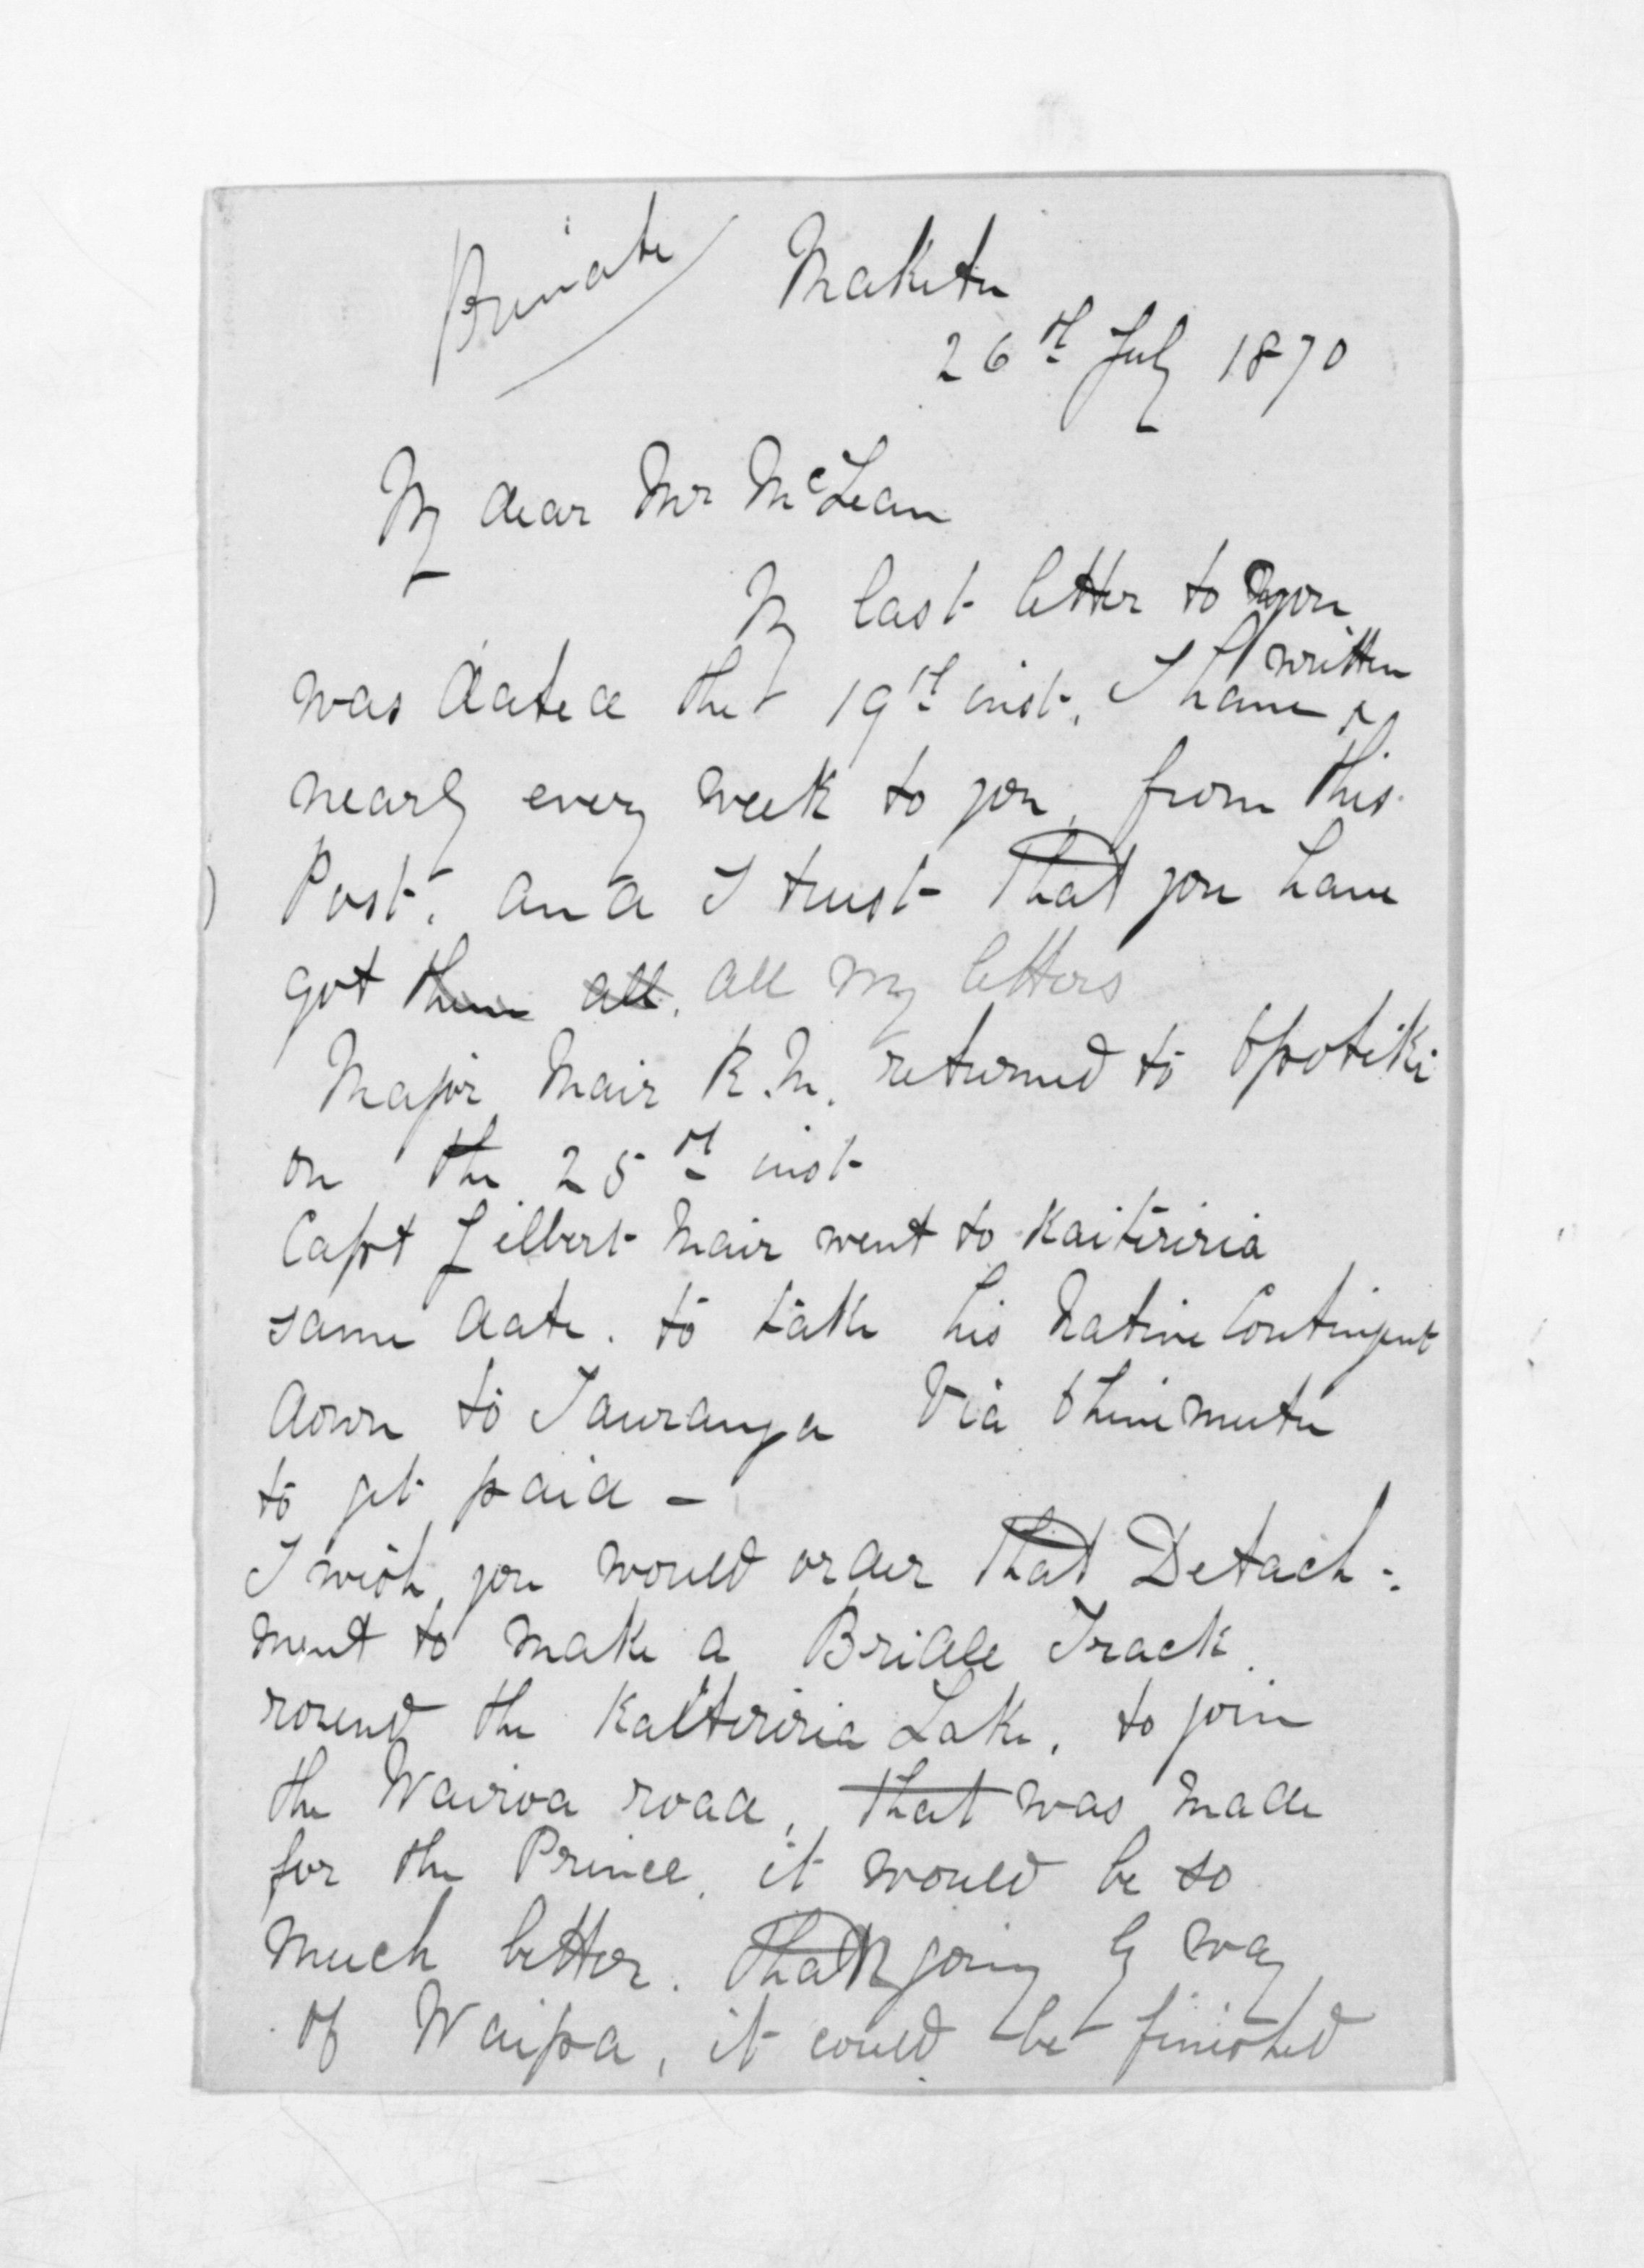 Private Maketu
26th July 1870
My dear Mr McLean
My last letter to you
was dated the 19th inst. I have written
nearly every week to you, from this
Post. and I trust that you have
got them all. all my letters
Major Mair R.M. returned to Opotiki
on the 25th inst
Capt Gilbert Mair went to Kaiteriria
same date. to take his Native Contingent
down to Tauranga Via Ohinimutu
to get paid -
I wish you would order that Detach-:
ment to make a Bridle Track
round the Kaiteriria Lake, to join
the Wairoa road, that was made
for the Prince. it would be so
much better. than going by way
of Waipa, it could be finished